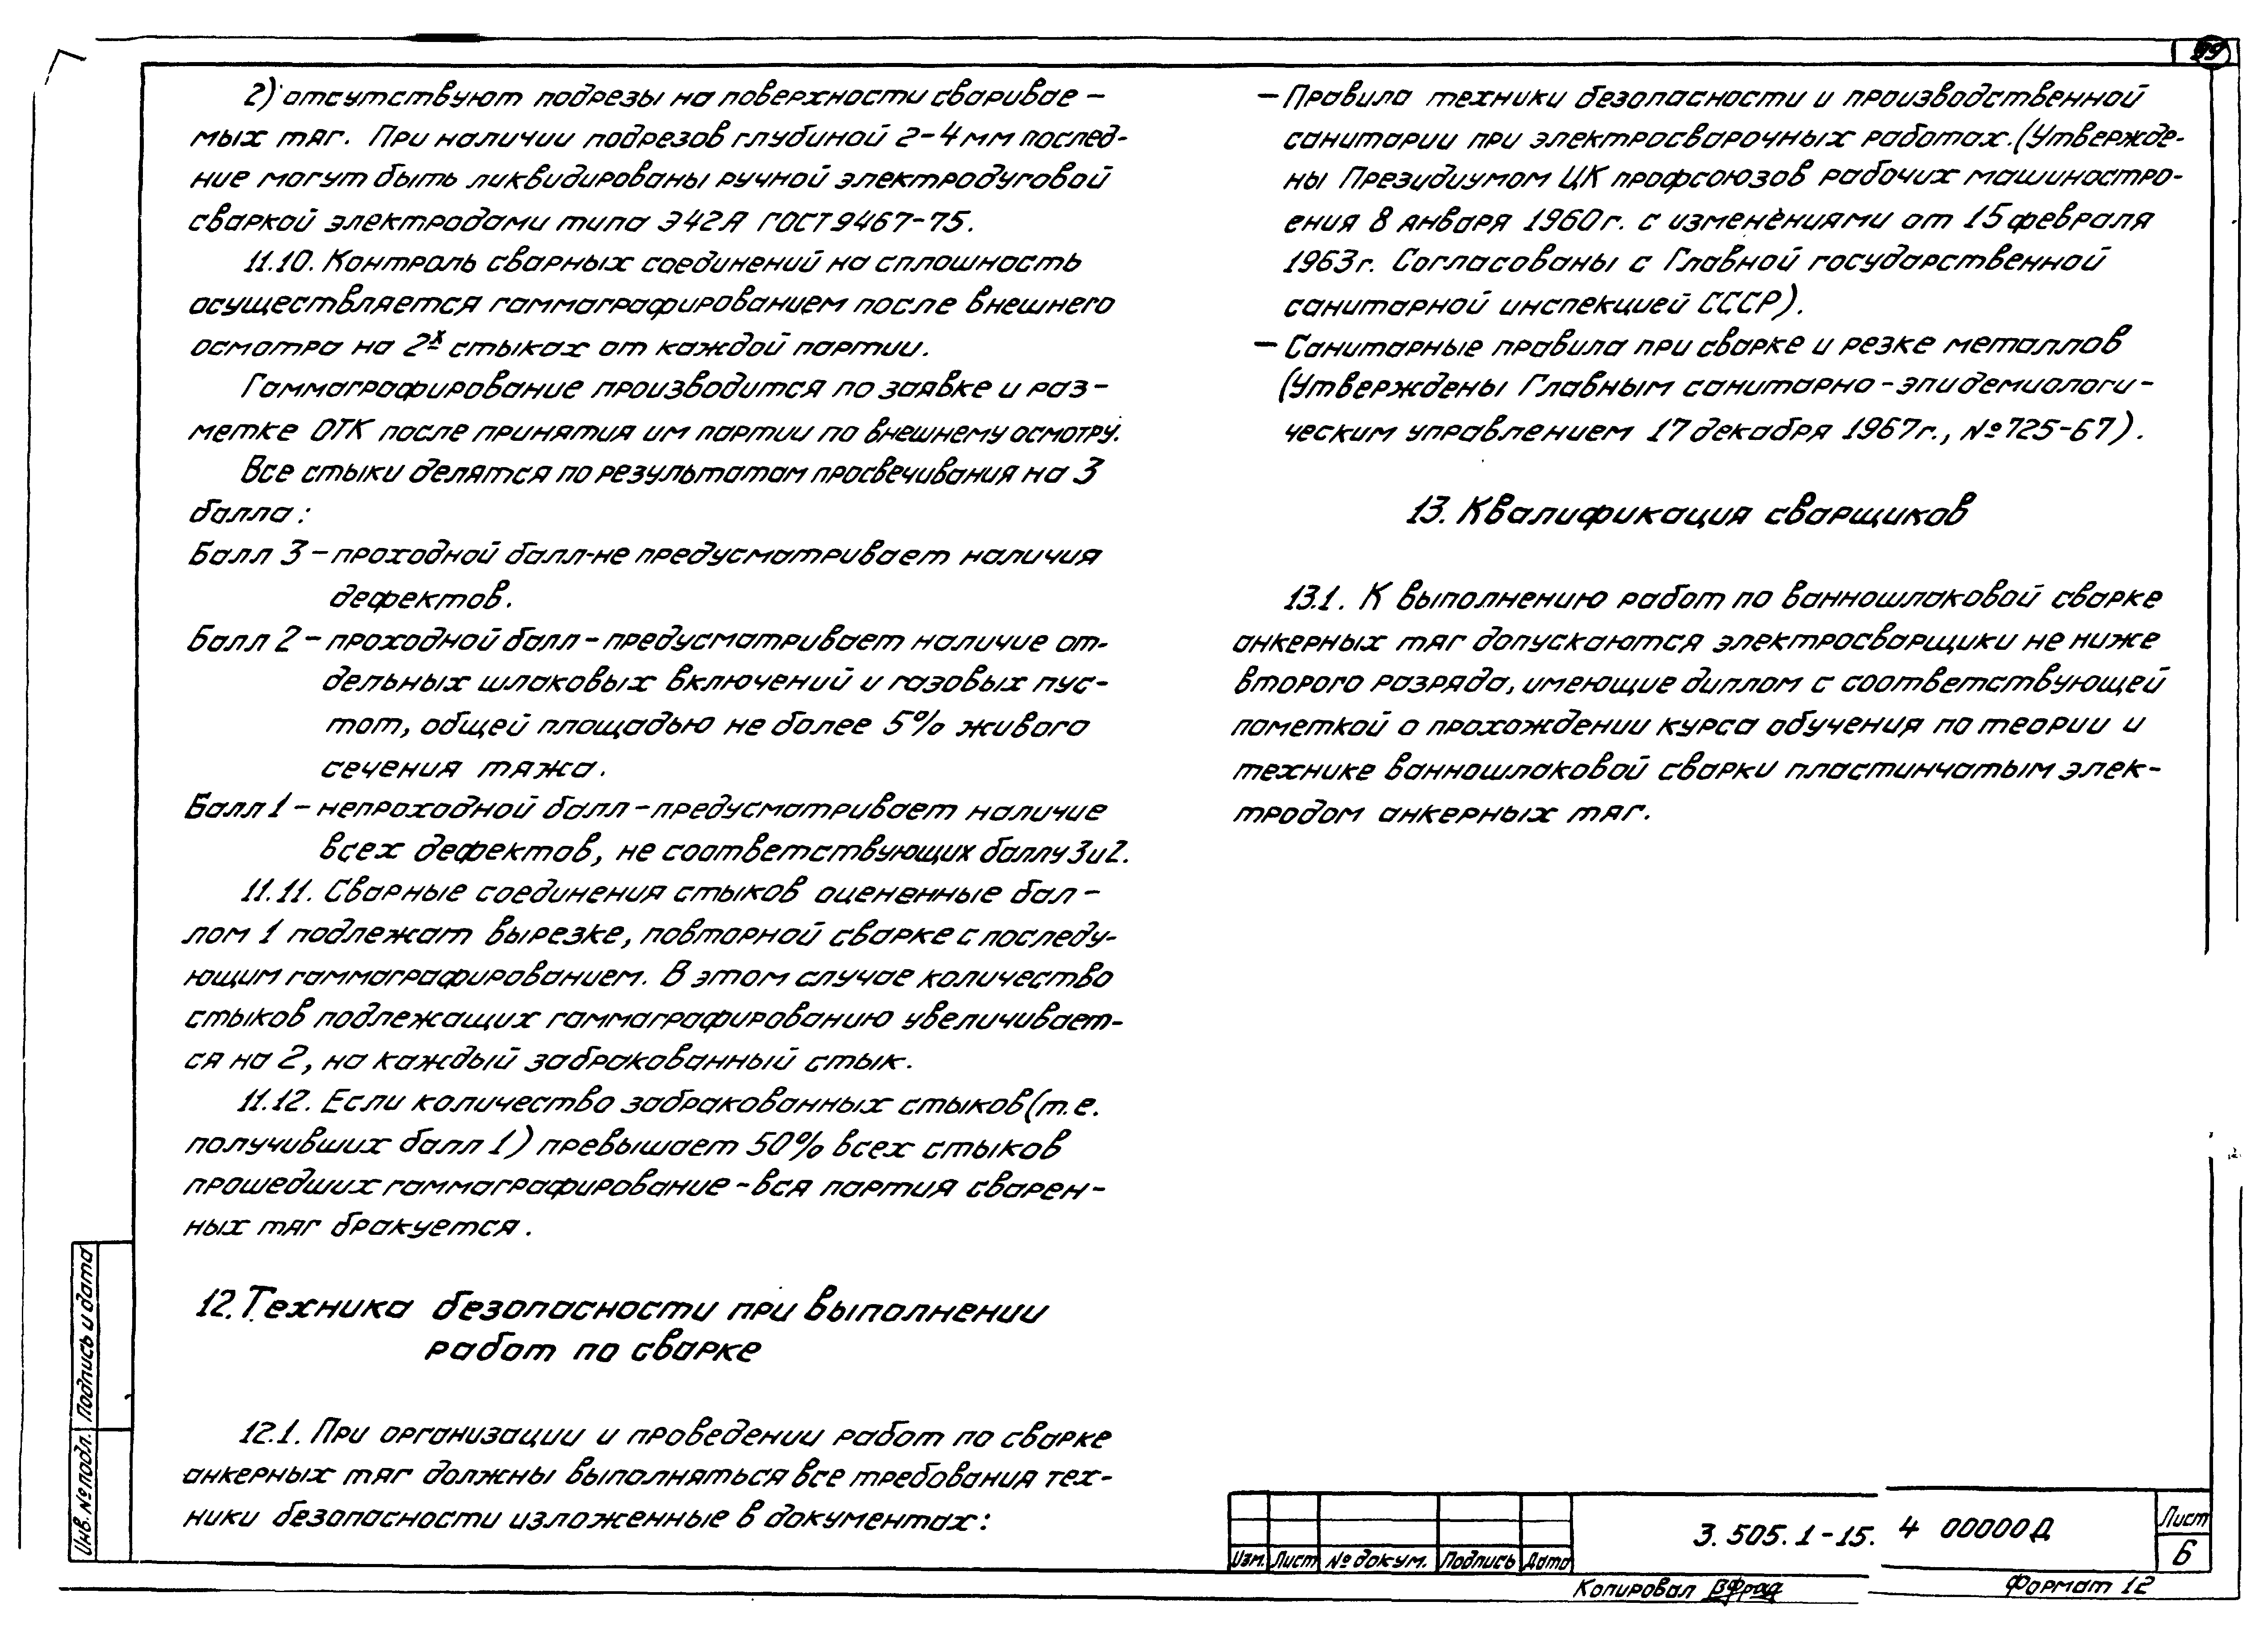 2) отсутствуют подрезы на поверхности сваривае -
мых тяг. При наличии подрезов глубиной 2-4 мм послед-
ние могут быть ликвидированы ручной электродуговой
сваркой электродами типа Э42А ГОСТ 9467-75.
11.10. Контроль сварных соединений на сплошность
осуществляется гаммаграфированием после внешнего
осмотра на 2х стыках от каждой партии.
Гаммаграфирование производится по заявке и раз-
метке ОТК после принятия им партии по внешнему осмотру.
Все стыки делятся по результатам просвечивания на 3
балла:
Балл 3 - проходной балл-не предусматривает наличия
дефектов.
Балл 2 - проходной балл - предусматривает наличие от-
дельных шлаковых включений и газовых пус-
тот, общей площадью не более 5% живого
сечения тяжа.
Балл 1 - непроходной балл - предусматривает наличие
всех дефектов, не соответствующих баллу 3 и 2.
11.11. Сварные соединения стыков оцененные бал -
лом 1 подлежат вырезке, повторной сварке с последу-
ющим гаммаграфированием. В этом случае количество
стыков подлежащих гаммаграфированию увеличивает-
ся на 2, на каждый забракованный стык.
11.12. Если количество забракованных стыков (т.е.
получивших балл 1) превышает 50% всех стыков
прошедших гаммаграфирование - вся партия сварен-
ных тяг бракуется.
12. Техника безопасности при выполнении
работ по сварке
12.1. При организации и проведении работ по сварке
анкерных тяг должны выполняться все требования тех-
ники безопасности изложенные в документах:
- Правила техники безопасности и производственной
санитарии при электросварочных работах. (Утвержде-
ны Президиумом ЦК профсоюзов рабочих машиностро-
ения 8 января 1960 г. с изменениями от 15 февраля
1963 г. Согласованы с Главной государственной
санитарной инспекцией СССР).
- Санитарные правила при сварке и резке металлов
(Утверждены Главным санитарно - эпидемиологи -
ческим управлением 17 декабря 1967 г., № 725-67).
13. Квалификация сварщиков
13.1. К выполнению работ по ванношлаковой сварке
анкерных тяг допускаются электросварщики не ниже
второго разряда, имеющие диплом с соответствующей
пометкой о прохождении курса обучения по теории и
технике ванношлаковой сварки пластинчатым элек-
тродом анкерных тяг.
Подпись и дата
Инв. № подл.
Изм. Лист № докум. Подпись Дата
3.505.1-15. 4 00000Д
Лист
6
Копировал
Формат 12